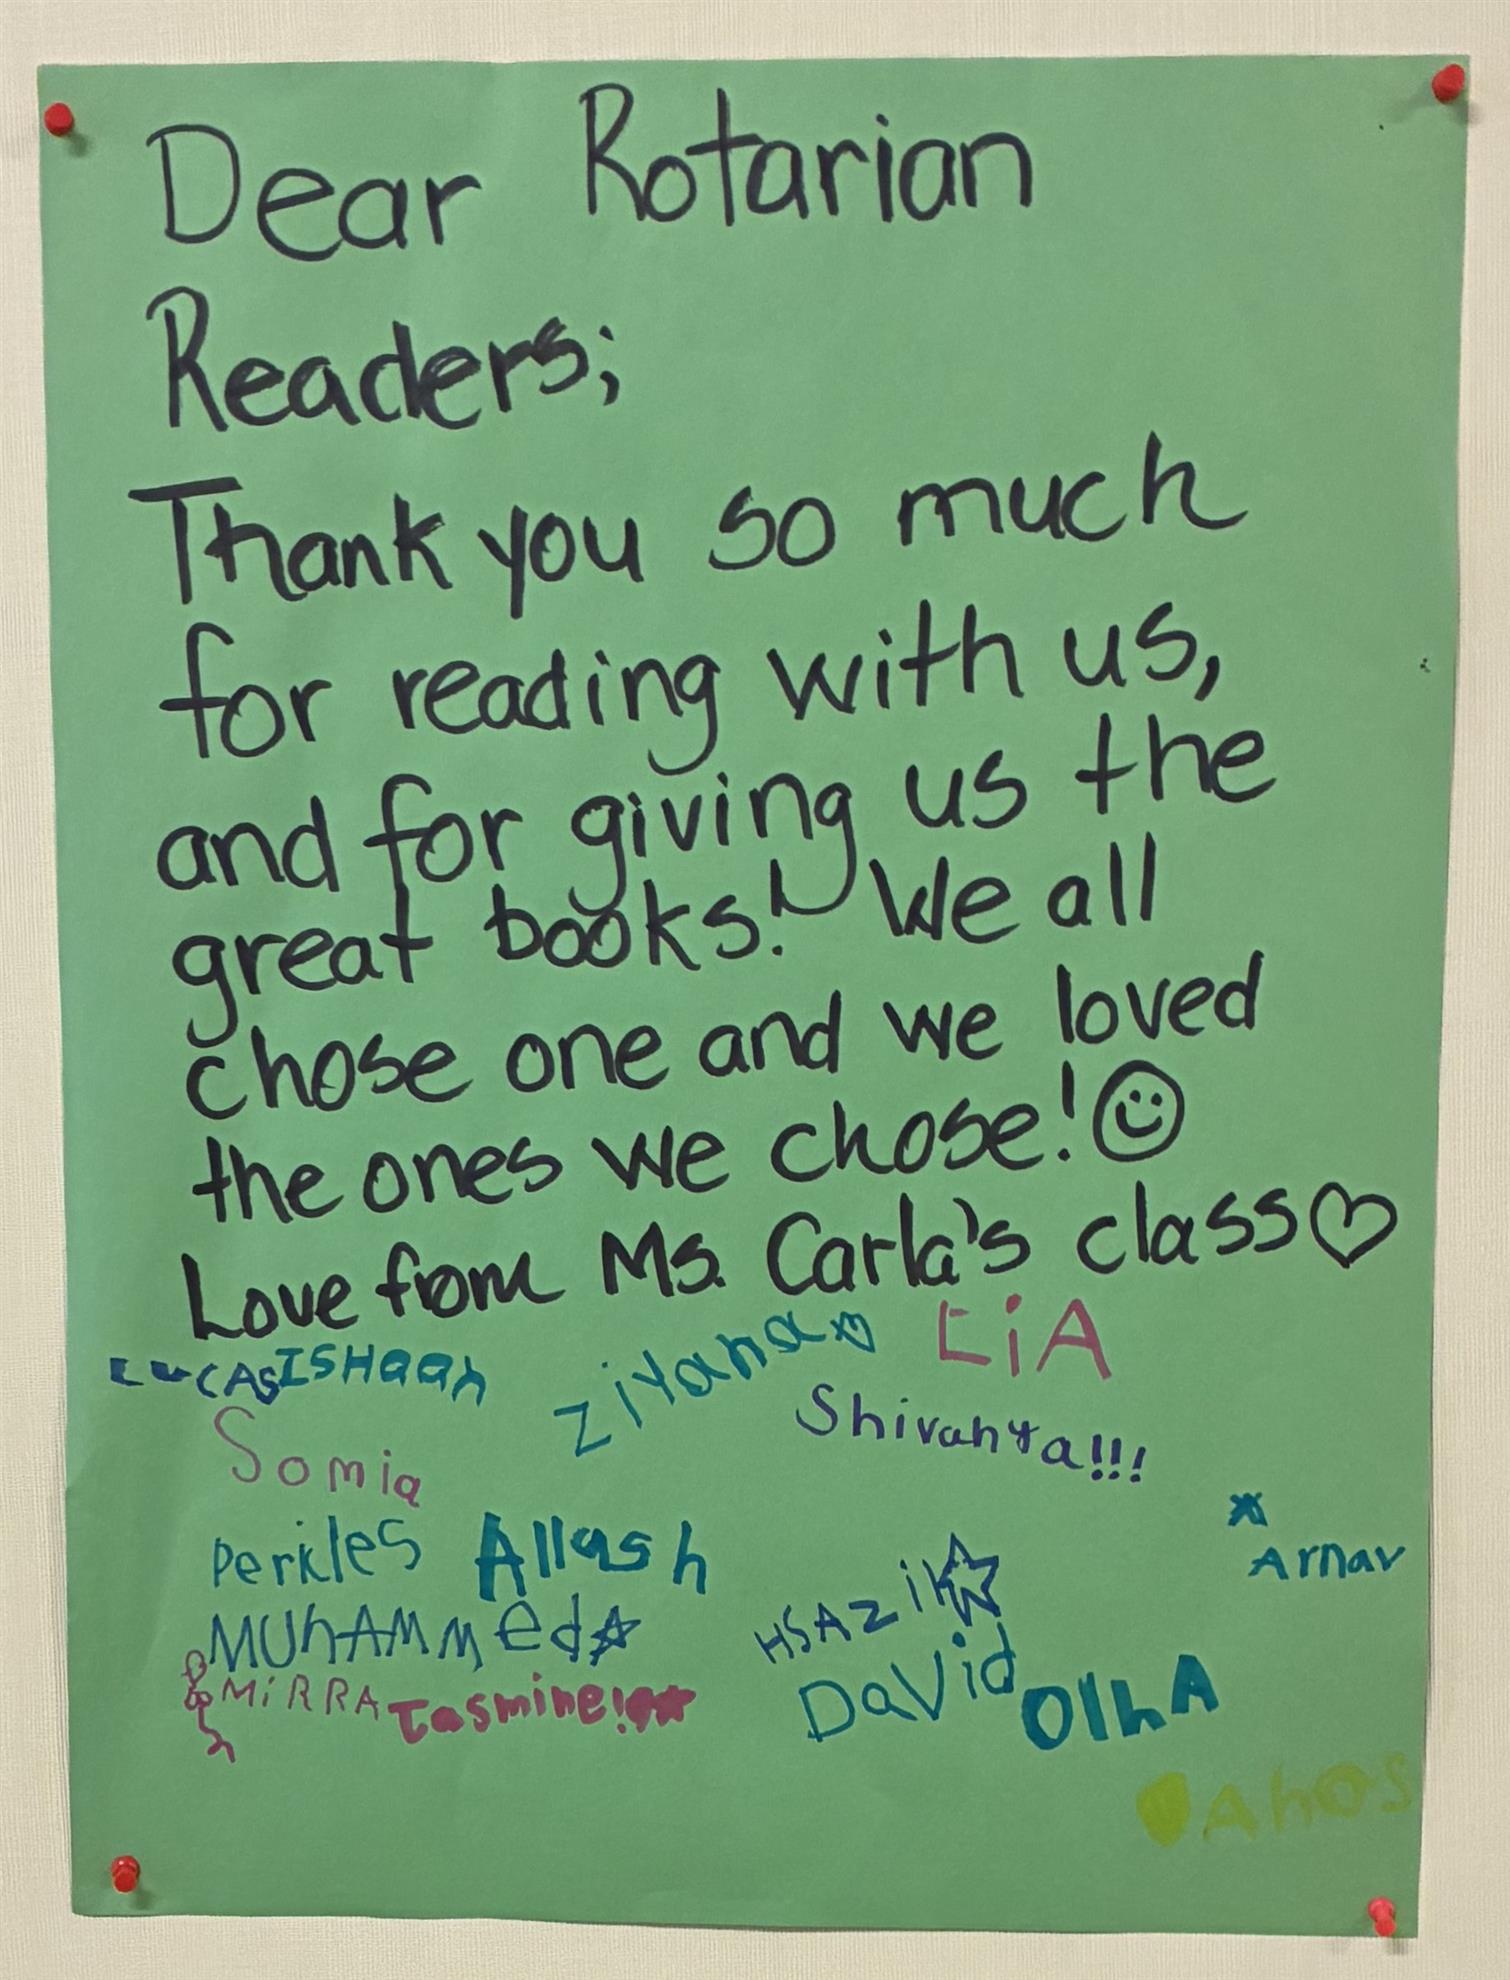 Dear Rotarian
Readers;
Thank you so much
for reading with us,
and for giving us the
great books! We all
chose one and we loved
the ones we chose!
Love from Ms. Carla's class
LUCAS ISHaan Ziyana LiA
Somia Shivanya!!!
Perkles Allash Arnav
MUhAMMed HSAZik
MiRRA Jasmine! DaVid OlhA
Ahos